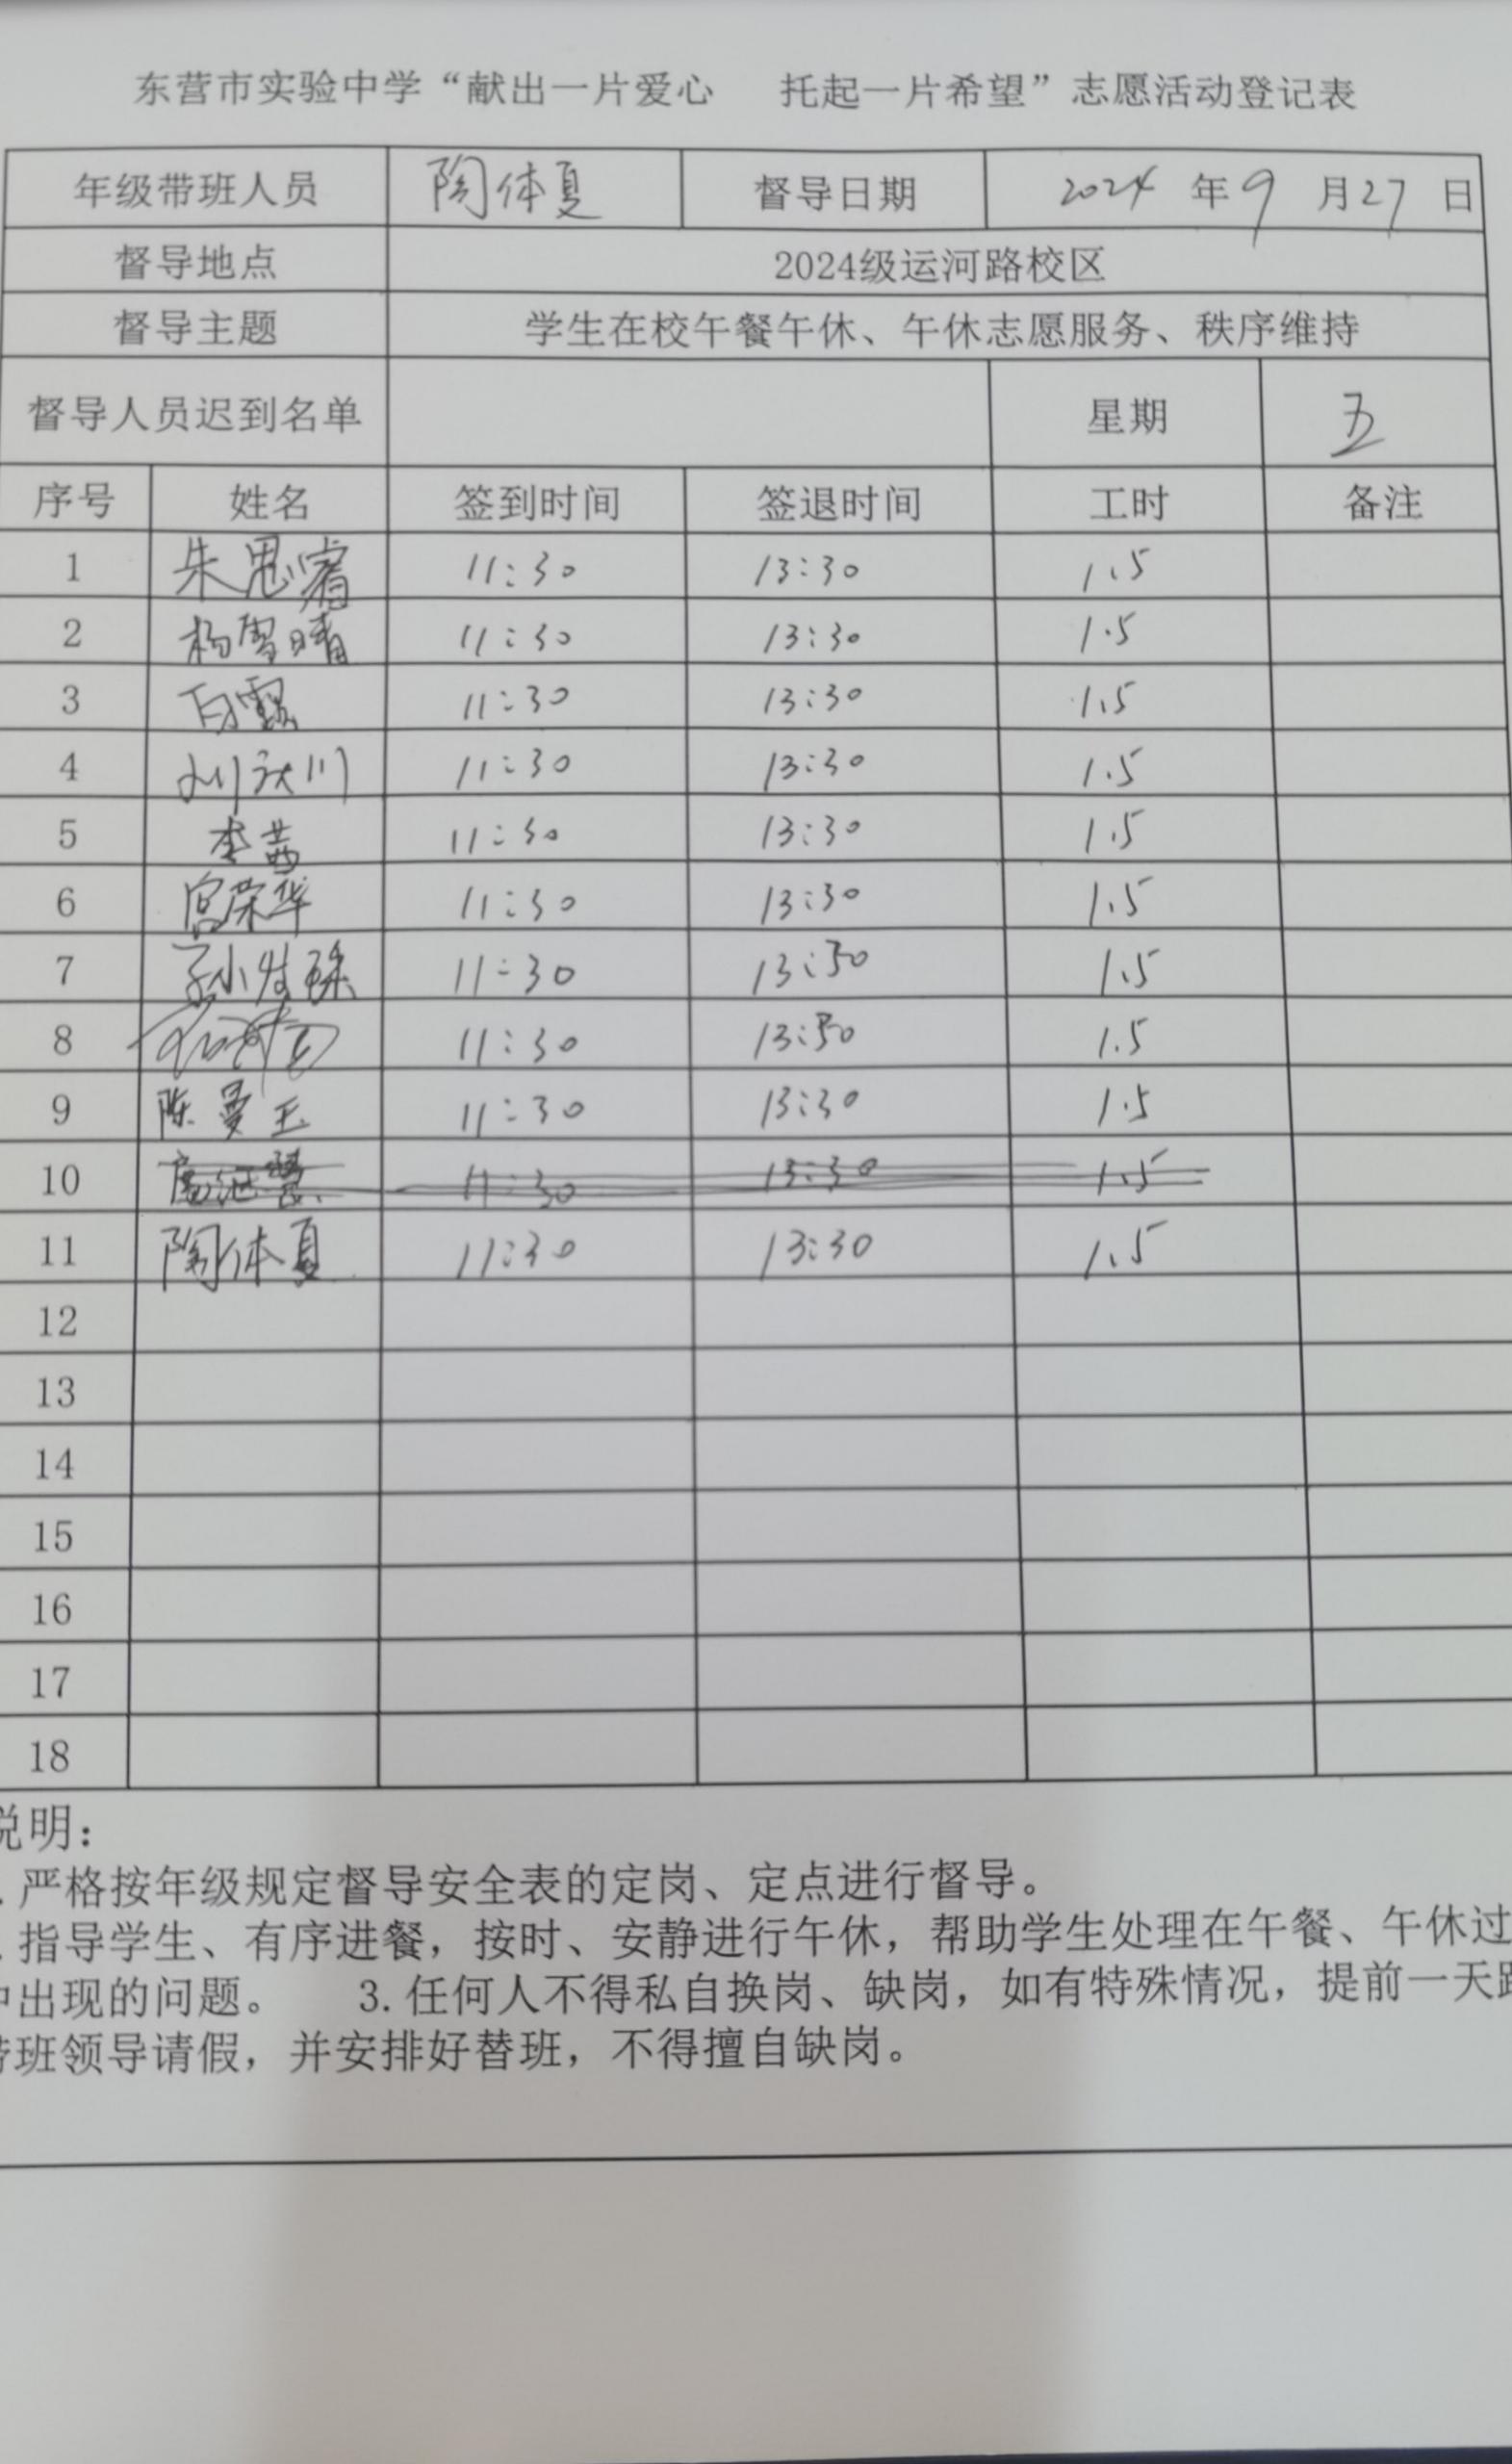 东营市实验中学“献出一片爱心 托起一片希望”志愿活动登记表
年级带班人员 陶体夏 督导日期 2024 年 9 月 27 日
督导地点 2024级运河路校区
督导主题 学生在校午餐午休、午休志愿服务、秩序维持
督导人员迟到名单 星期 五
序号 姓名 签到时间 签退时间 工时 备注
1 朱思睿 11:30 13:30 1.5
2 杨雪晴 11:30 13:30 1.5
3 白露 11:30 13:30 1.5
4 刘 川 11:30 13:30 1.5
5 李茜 11:30 13:30 1.5
6 宫荣华 11:30 13:30 1.5
7 孙 11:30 13:30 1.5
8 11:30 13:30 1.5
9 陈曼玉 11:30 13:30 1.5
10 11:30 13:30 1.5
11 陶体夏 11:30 13:30 1.5
12
13
14
15
16
17
18
说明：
. 严格按年级规定督导安全表的定岗、定点进行督导。
. 指导学生、有序进餐，按时、安静进行午休，帮助学生处理在午餐、午休过
中出现的问题。 3. 任何人不得私自换岗、缺岗，如有特殊情况，提前一天跟
带班领导请假，并安排好替班，不得擅自缺岗。